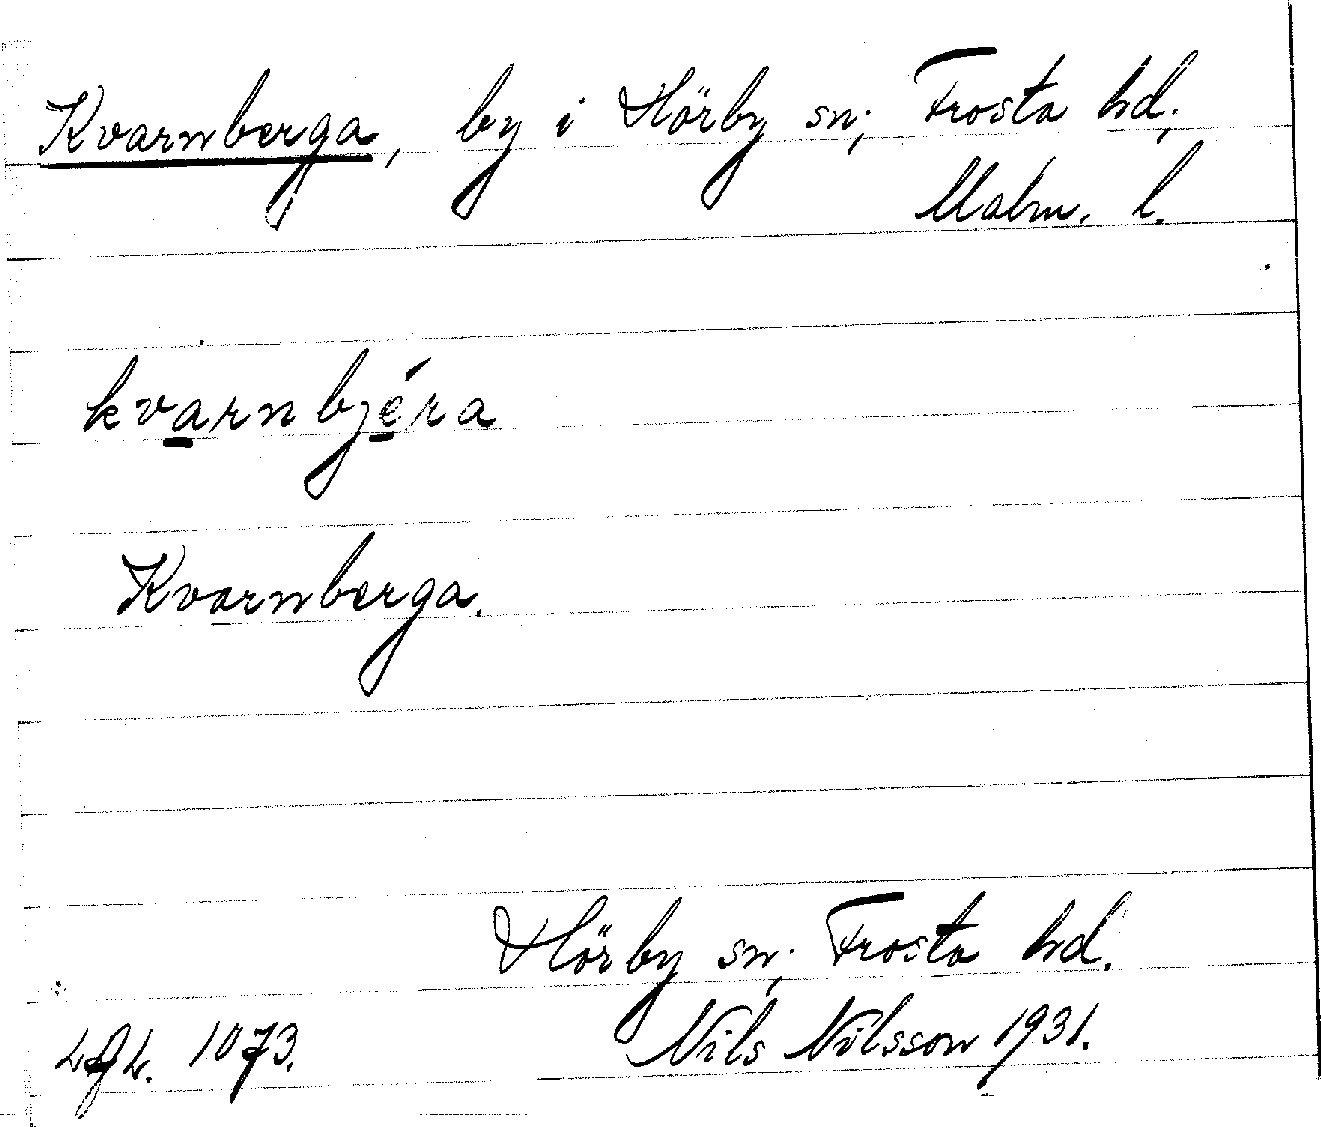 Kvarnberga, by i Hörby sn; Frosta hd;
Malm. l.
kvarnbjéra
Kvarnberga.
Hörby sn; Frosta hd.
1073. Nils Nilsson 1931.